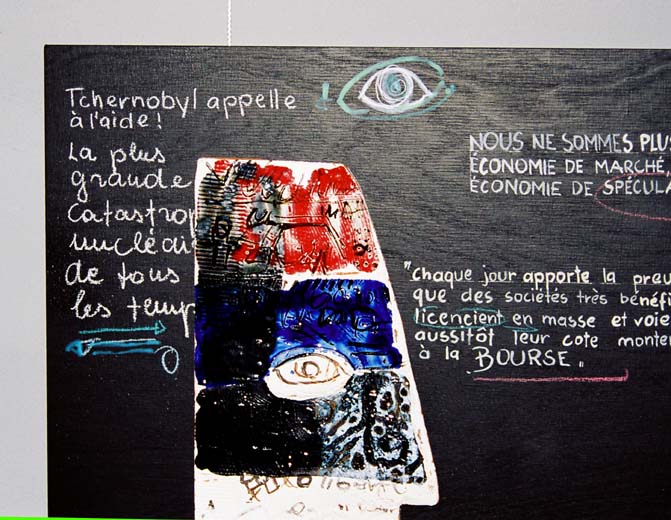 Tchernobyl appelle
à l'aide !
La plus
grande
catastrop
nucléai
de tous
les temp
NOUS NE SOMMES PLUS
ÉCONOMIE DE MARCHÉ,
ÉCONOMIE DE SPÉCULA
"Chaque jour apporte la preu
que des sociétés très bénéf
licencient en masse et voie
aussitôt leur cote monter
à la BOURSE"